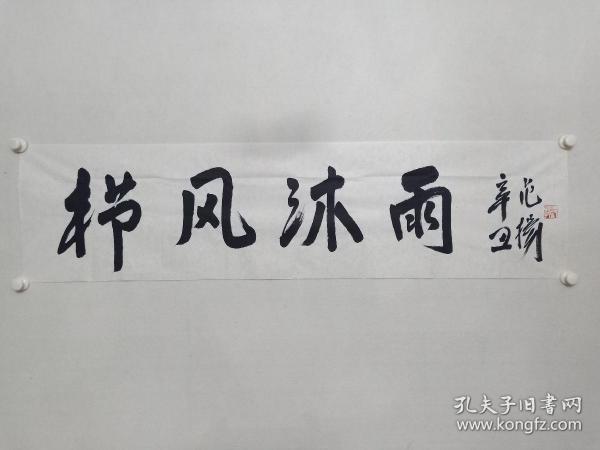 栉风沐雨
辛丑
范扬
孔夫子旧书网
www.kongfz.com